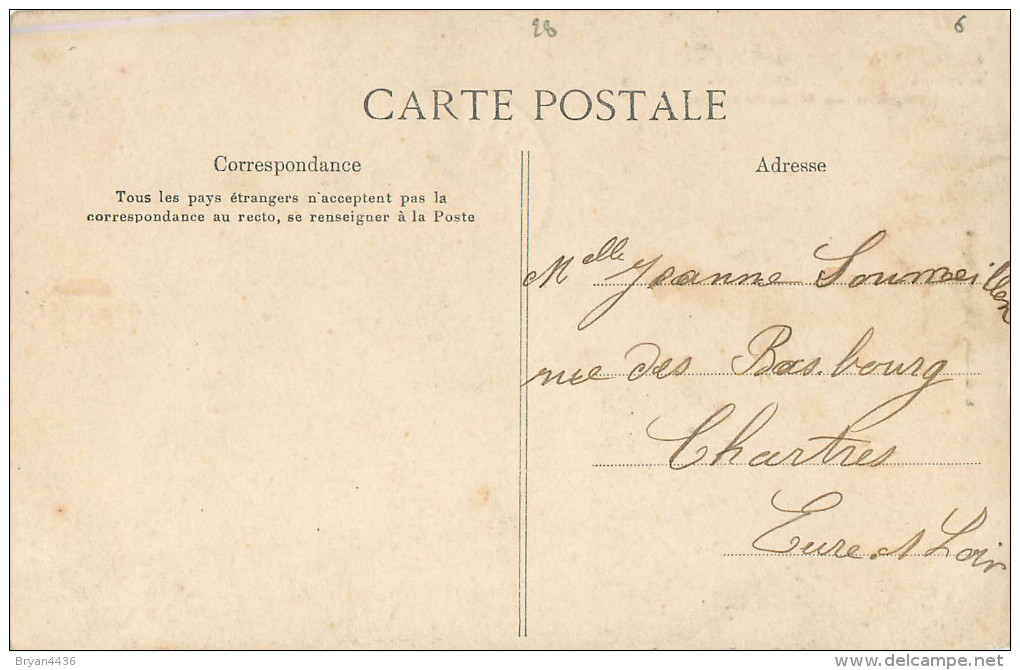 28
6
CARTE POSTALE
Correspondance
Tous les pays étrangers n'acceptent pas la
correspondance au recto, se renseigner à la Poste
Adresse
Melle Jeanne Soumeillan
rue des Bas-bourg
Chartres
Eure et Loir
Bryan4436
delcampe.net